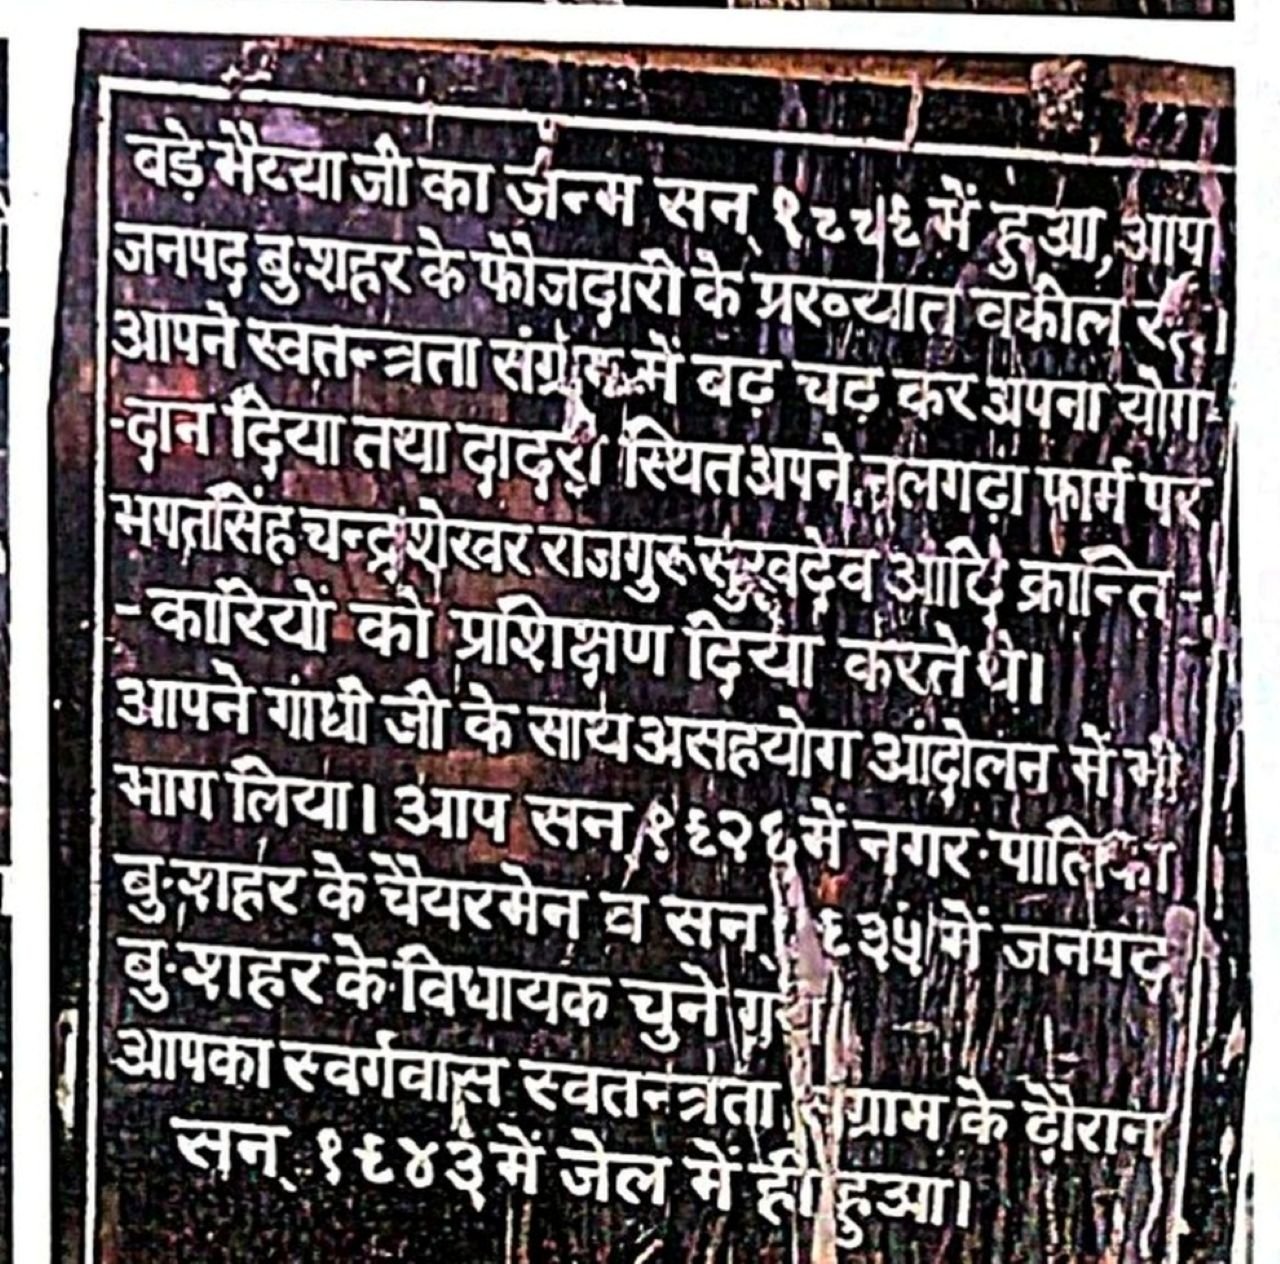 बड़े भैय्या जी का जन्म सन् में हुआ, आप
जनपद बु·शहर के फौजदारी के प्रख्यात वकील
आपने स्वतन्त्रता संग्राम में बढ़ चढ़ कर अपना योग-
-दान दिया तथा दादरी स्थित अपने नलगढ़ा फार्म पर
भगतसिंह चन्द्रशेखर राजगुरू सुखदेव आदि क्रान्ति-
-कारियों को प्रशिक्षण दिया करते थे।
आपने गांधी जी के साथ असहयोग आंदोलन में भी
भाग लिया। आप सन् १९२९ में नगर·पालिका
बु·शहर के चैयरमेन व सन् १९३५ में जनपद
बु·शहर के विधायक चुने गये
आपका स्वर्गवास स्वतन्त्रता संग्राम के दौरान
सन् १९४३ में जेल में ही हुआ।